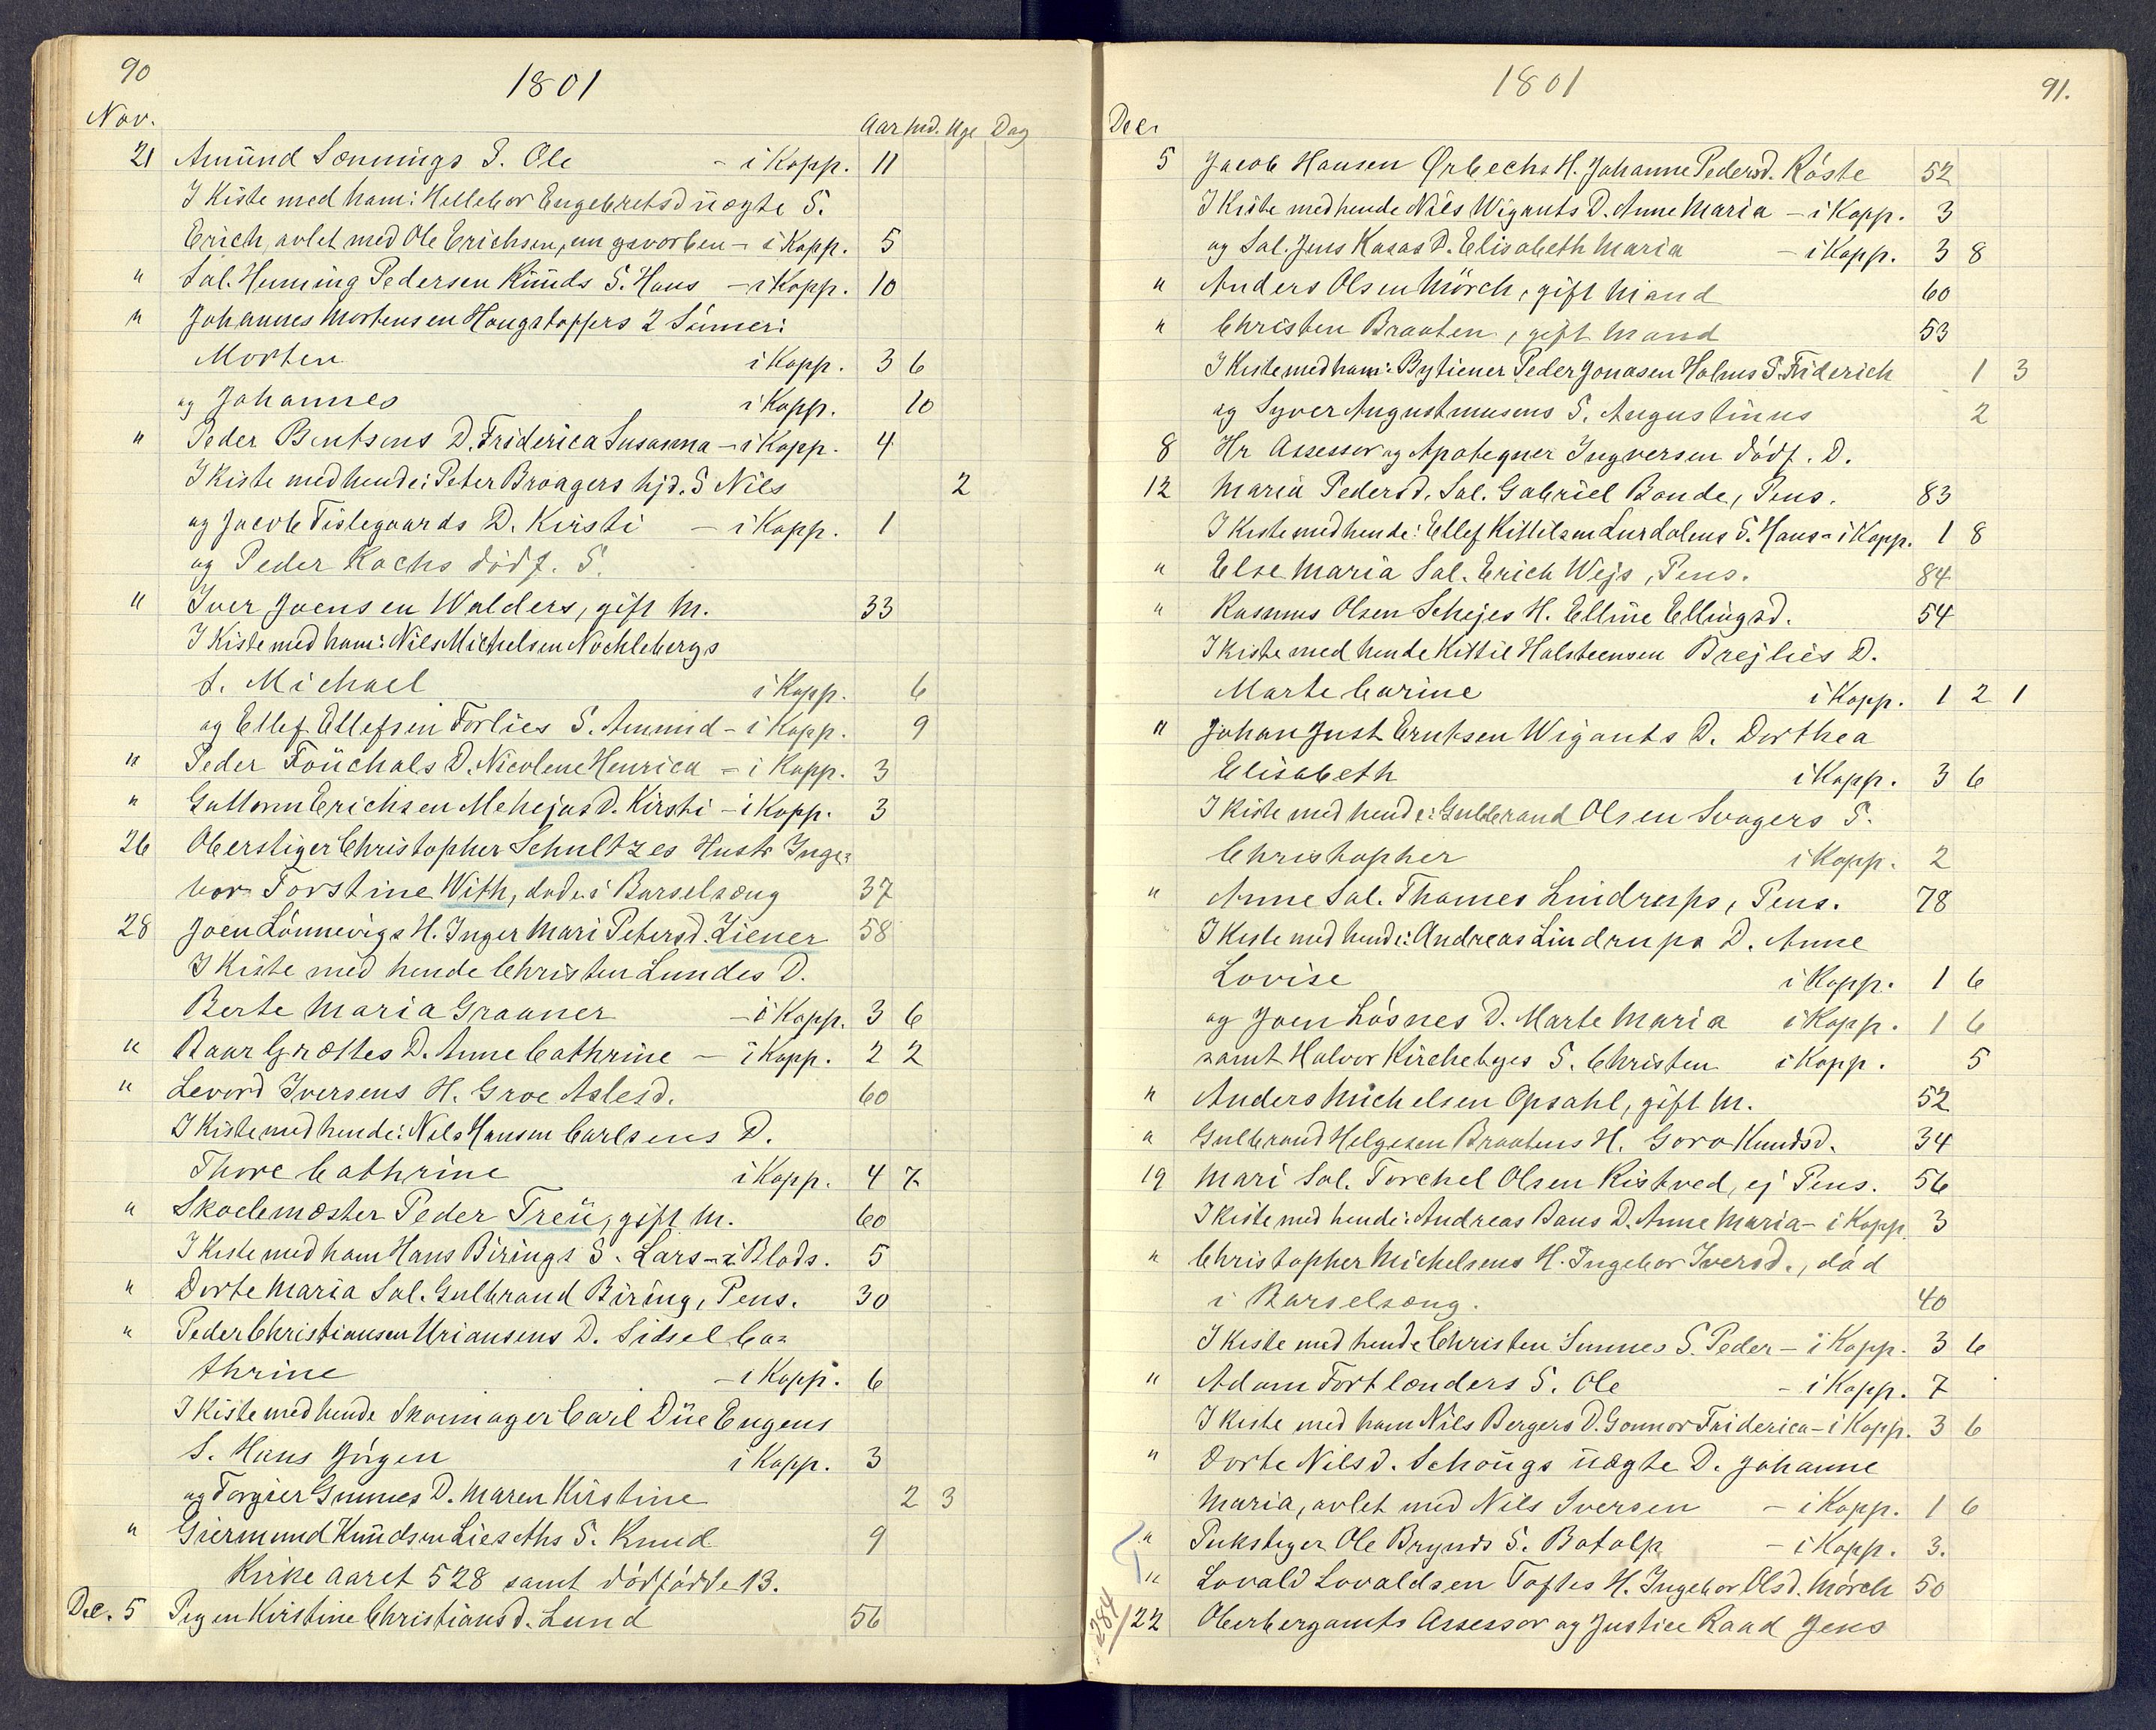 90
1801
Nov.
Aar Md. Uge Dag
21 Amünd Sønnings S. Ole - i Kopp. 11
I Kiste med ham: Hellebor Engebretsd üægte S.
Erich, avlet med Ole Erichsen, en gevorben - i Kopp. 5
" Sal. Henning Pedersen Künds S. Hans - i Kopp. 10
" Johannes Mortensen Hougstoppers 2 Sönner:
Morten i Kopp. 3 6
og Johannes i Kopp. 10
" Peder Bentsens D. Friderica Susanna - i Kopp. 4
I Kiste med hende: Peter Braagers hjd. S Nils 2
og Jacob Tislegaards D. Kirsti - i Kopp. 1
og Peder Kochs dödf. S.
" Iver Joensen Walders, gift M. 33
I Kiste med ham: Nils Michelsen Nochlebergs
S. Michael i Kopp. 6
og Ellef Ellefsen Forlies S. Amund - i Kopp. 9
" Peder Foüchals D. Nicolene Henrica - i Kopp. 3
" Guttorm Erichsen Mehejas D. Kirsti - i Kopp. 3
26 Oberstiger Christopher Schultzes Hustr Inge=
bor Torstine With, døde i Barselsæng 37
28 Joen Lönnevigs H. Inger Mari Petersd. Ziener 58
I Kiste med hende Christen Lundes D.
Berte Maria Graaner - i Kopp. 3 6
" Baar Grættes D. Anne Cathrine - i Kopp. 2 2
" Levord Iversens H. Groe Aslesd. 60
I Kiste med hende: Nils Hansen Carlsens D.
Thore Cathrine i Kopp. 4 7
" Skolemester Peder Treü, gift M. 60
I Kiste med ham Hans Birings S. Lars - i Blods. 5
" Dorte Maria Sal. Gulbrand Biring, Pens. 30
" Peder Christiansen Uriansens D. Sidsel Ca=
thrine - i Kopp. 6
I Kiste med hende Skomager Carl Düe Eugens
S. Hans Jörgen i Kopp. 3
og Torgier Gunnes D. Maren Kirstine 2 3
" Giermund Knüdsen Lieseths S. Knud 9
Kirke aaret 528 samt dödfödde 13.
Dec. 5 Pigen Kirstine Christiansd. Lund 56
1801
91.
Dec.
5 Jacob Hansen Ørbechs H. Johanne Pedersd. Röste 52
I Kiste med hende Nils Wigants D. Anne Maria - i Kopp. 3
og Sal. Jens Kasas D. Elisabeth Maria - i Kopp. 3 8
" Anders Olsen Mörch, gift Mand 60
" Christen Braaten, gift Mand 53
I Kiste med ham: Bytiener Peder Jonasen Holms S. Friderich 1 3
og Syver Augustinusens S. Augustinus 2
8 Hr Assessor og Apotegner Ingversen dödf. D.
12 Maria Pedersd. Sal. Gabriel Bonde, Pens. 83
I Kiste med hende: Ellef Kittilsen Lurdalens S. Hans - i Kopp. 1 8
" Else Maria Sal. Erich Wejs, Pens. 84
" Rasmus Olsen Schejes H. Elline Ellingsd. 54
I Kiste med hende Kittil Halsteensen Brejlies D.
Marte Carine i Kopp. 1 2 1
" Johan Just Erntsen Wigants D. Dorthea
Elisabeth i Kopp. 3 6
I Kiste med hende: Gulbrand Olsen Svagers S.
Christopher i Kopp. 2
" Anne Sal. Thomes Lindrups, Pens. 78
I Kiste med hende: Andreas Lindrups D. Anne
Lovise i Kopp. 1 6
og Joen Lösnes D. Marte Maria i Kopp. 1 6
samt Halvor Kirchebyes S. Christen i Kopp. 5
" Anders Michelsen Opsahl, gift M. 52
" Gulbrand Helgesen Braatens H. Goro Knudsd. 34
19 Mari Sal. Torchel Olsen Kistved, ej Pens. 56
I Kiste med hende: Andreas Baus D. Anne Maria - i Kopp. 3
" Christopher Michelsens H. Ingebor Iversd., död
i Barselsæng. 40
I Kiste med hende Christen Sunnes S. Peder - i Kopp. 3 6
" Adam Fortlænders S. Ole - i Kopp. 7
I Kiste med ham Nils Bergers D. Gonnor Friderica - i Kopp. 3 6
" Dorte Nilsd. Schougs üægte D. Johanne
Maria, avlet med Nils Iversen - i Kopp. 1 6
" Pukstiger Ole Brynds S. Botolp - i Kopp. 3.
" Lovald Lovaldsen Toftes H. Ingebor Olsd. Mörch 50
284/
22 Oberbergamts Assessor og Justice Raad Jens